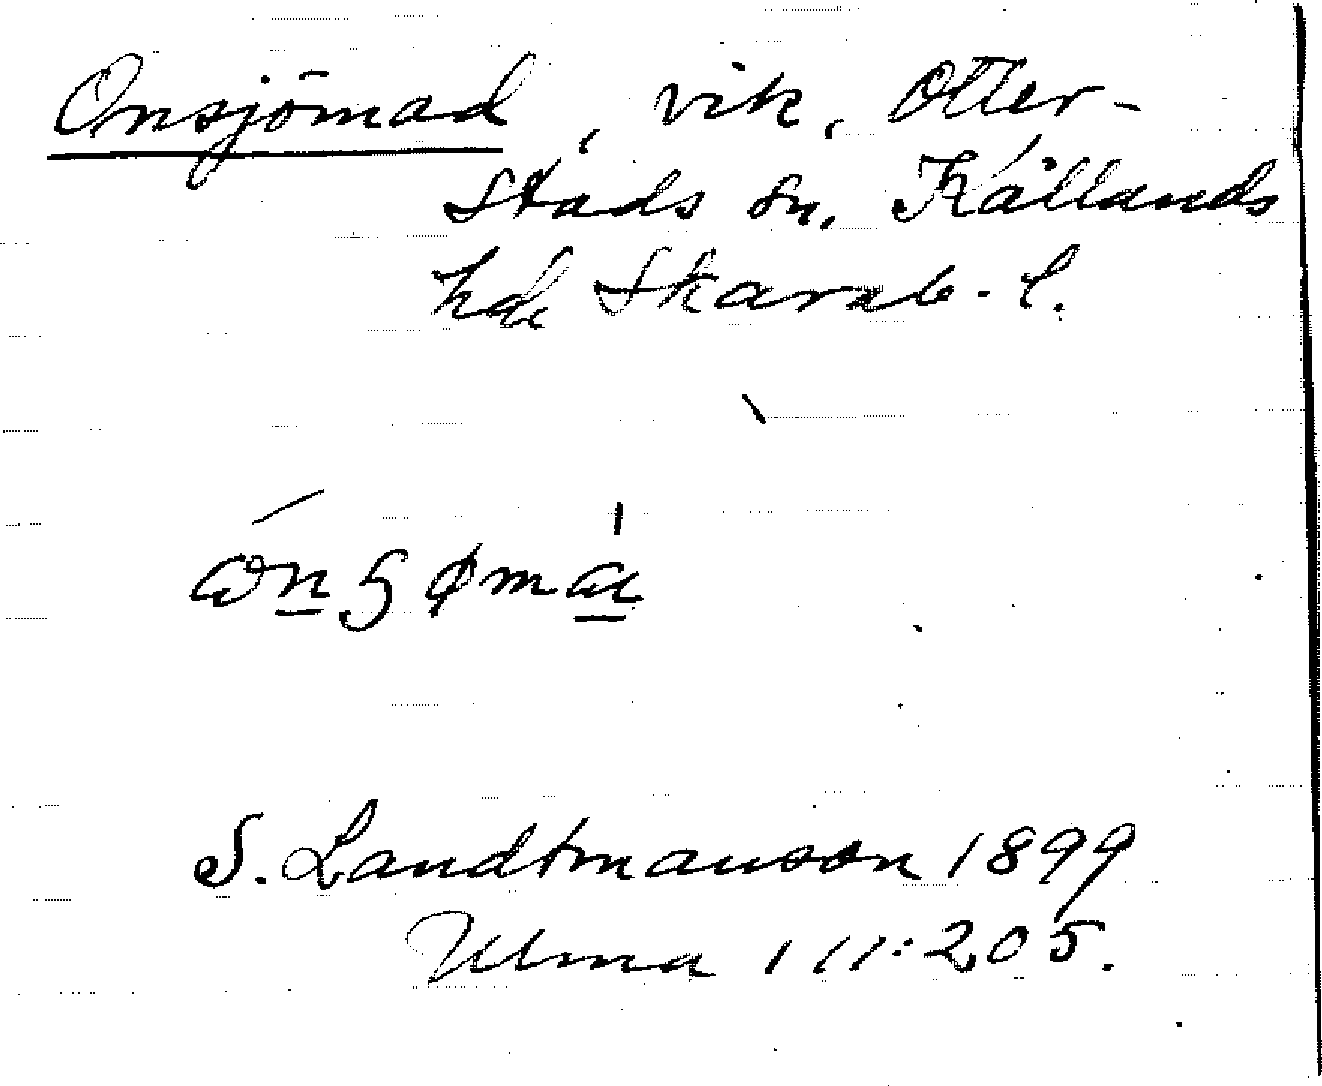 Onsjömad, vik, Otter-
stads sn, Kållands
hd Skarab. l.
S. Landtmanson 1899
Ulma 111:205.